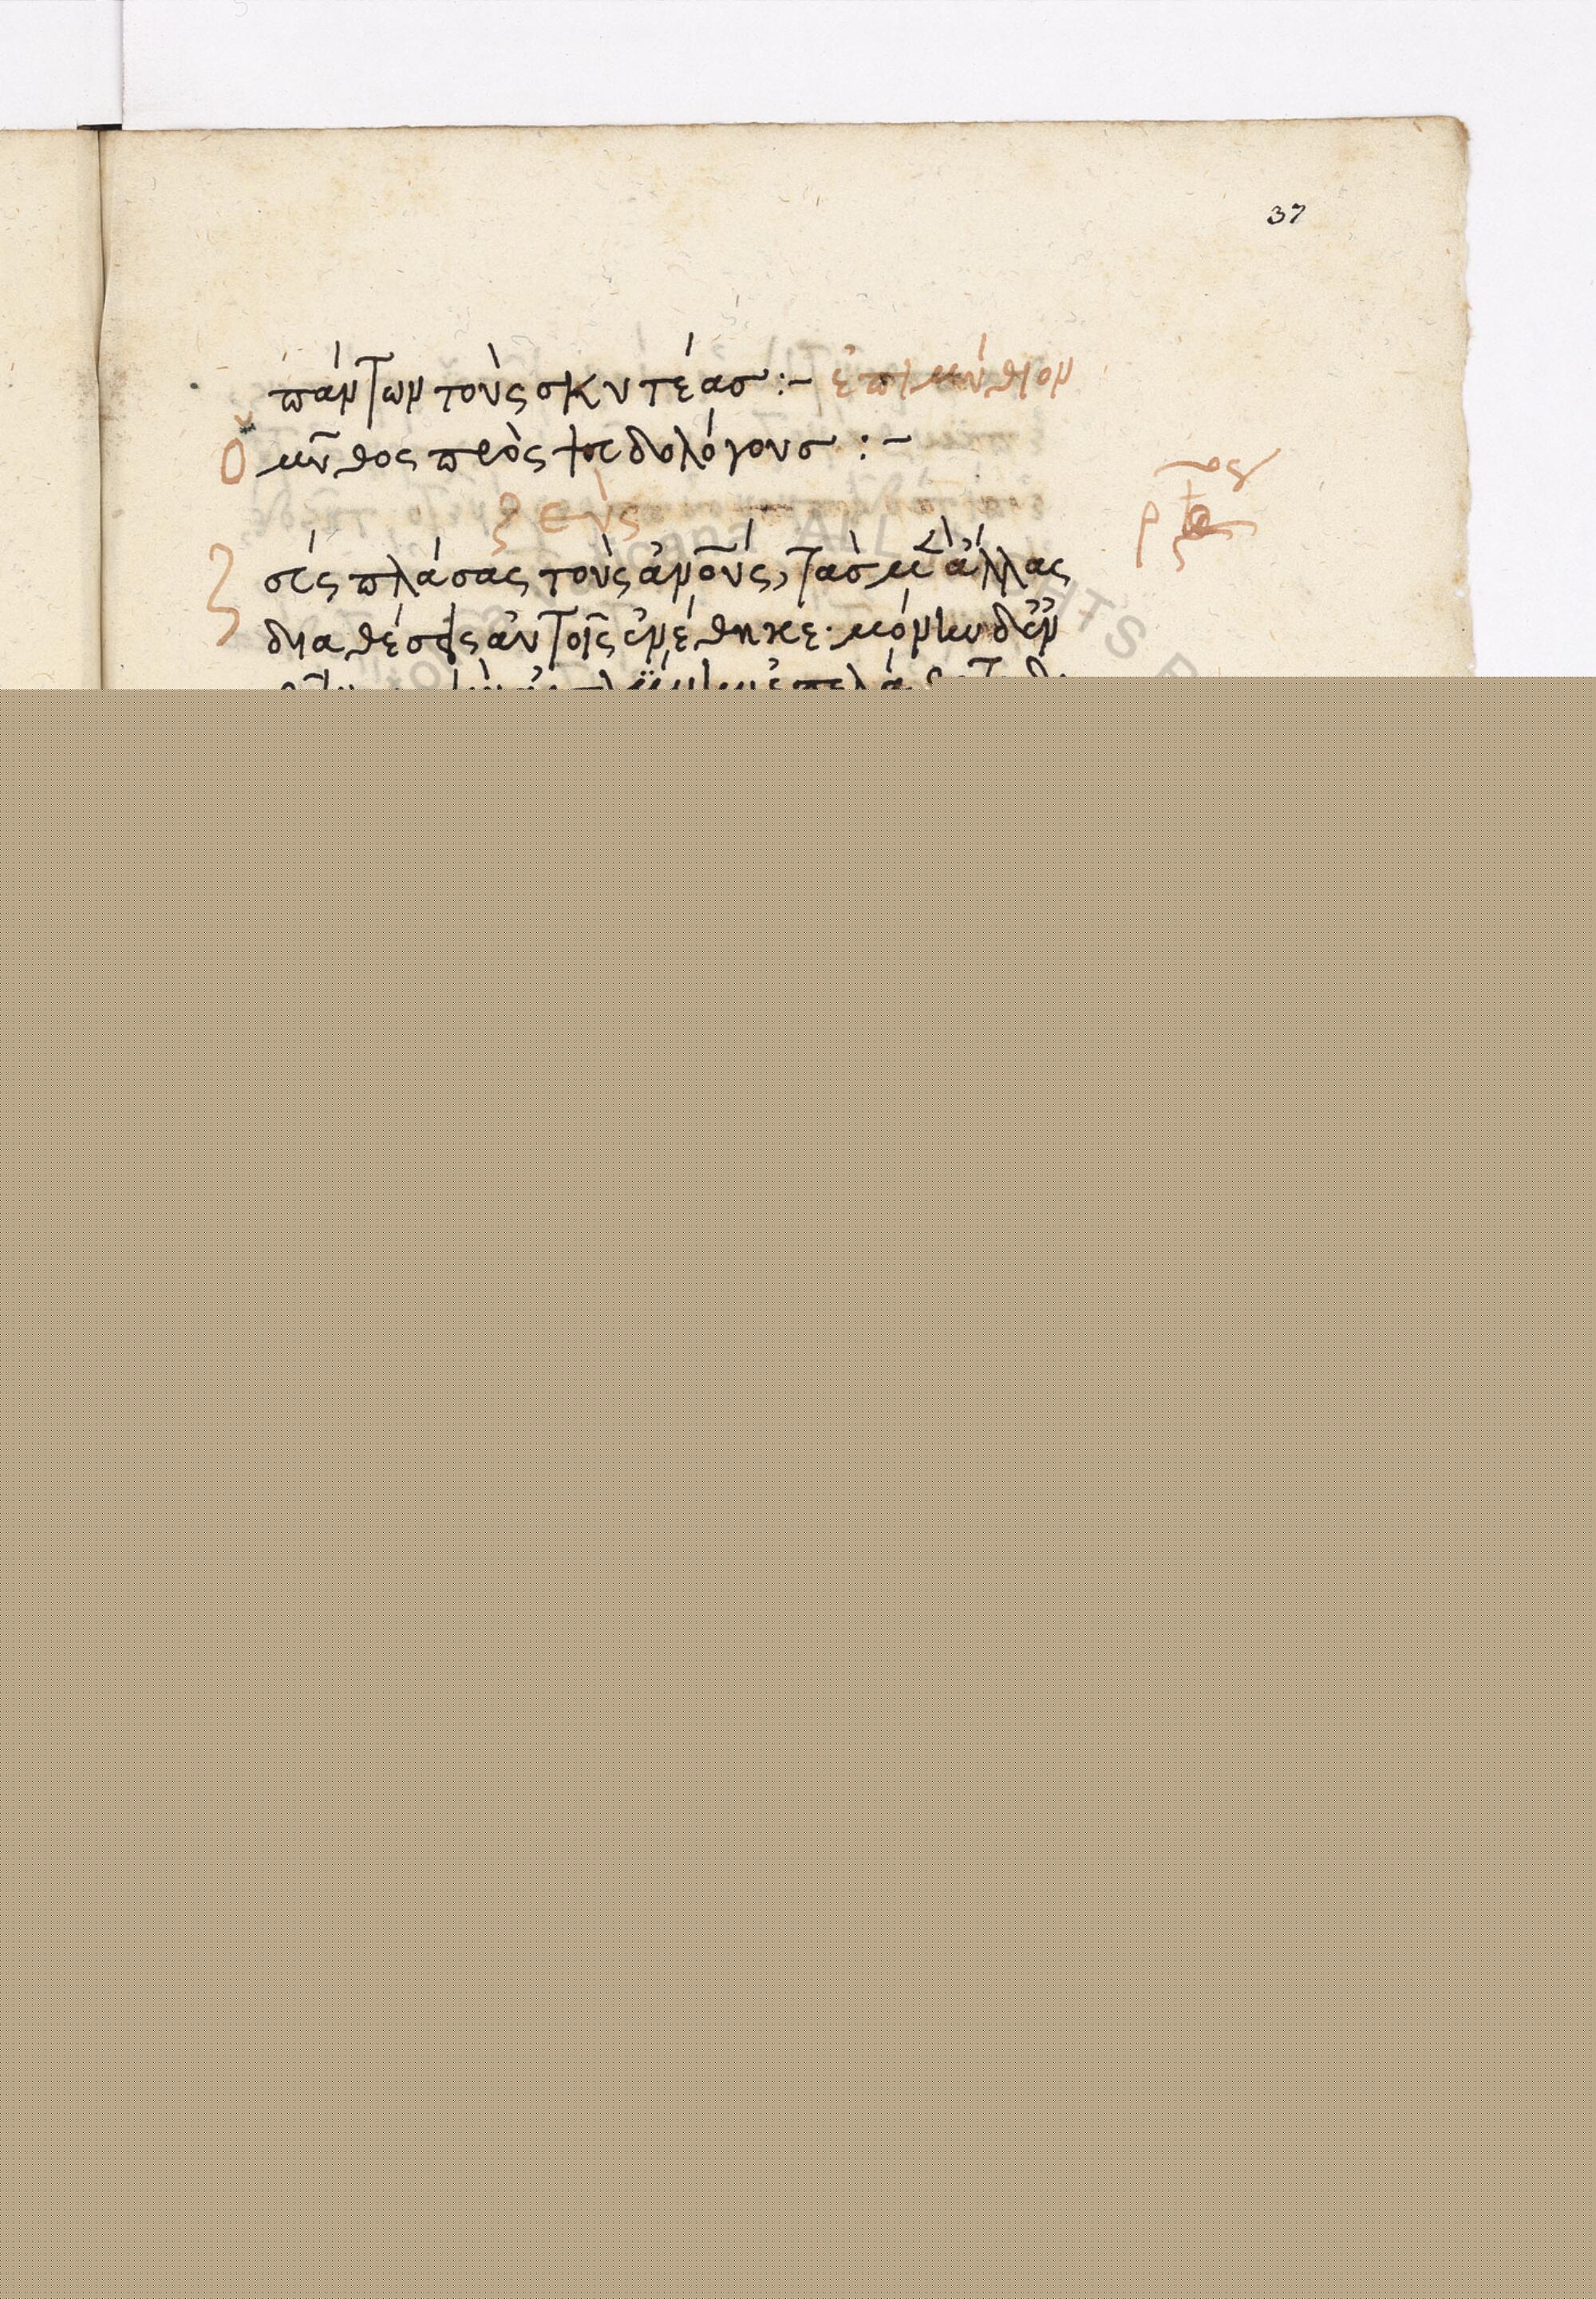 37
πάντων τοὺς σκυτέασ :- ἐπιμύθιον
Ὁ μῦθος πρὸς ψευδολόγουσ : -
ζεὺς
Ζεὺς πλάσας τοὺς ἀνο̅ύς, τὰσ μὲν ἄλλας
διαθέσεις αὐτοῖς ἐνέθηκε· μόνην δὲ ἐν